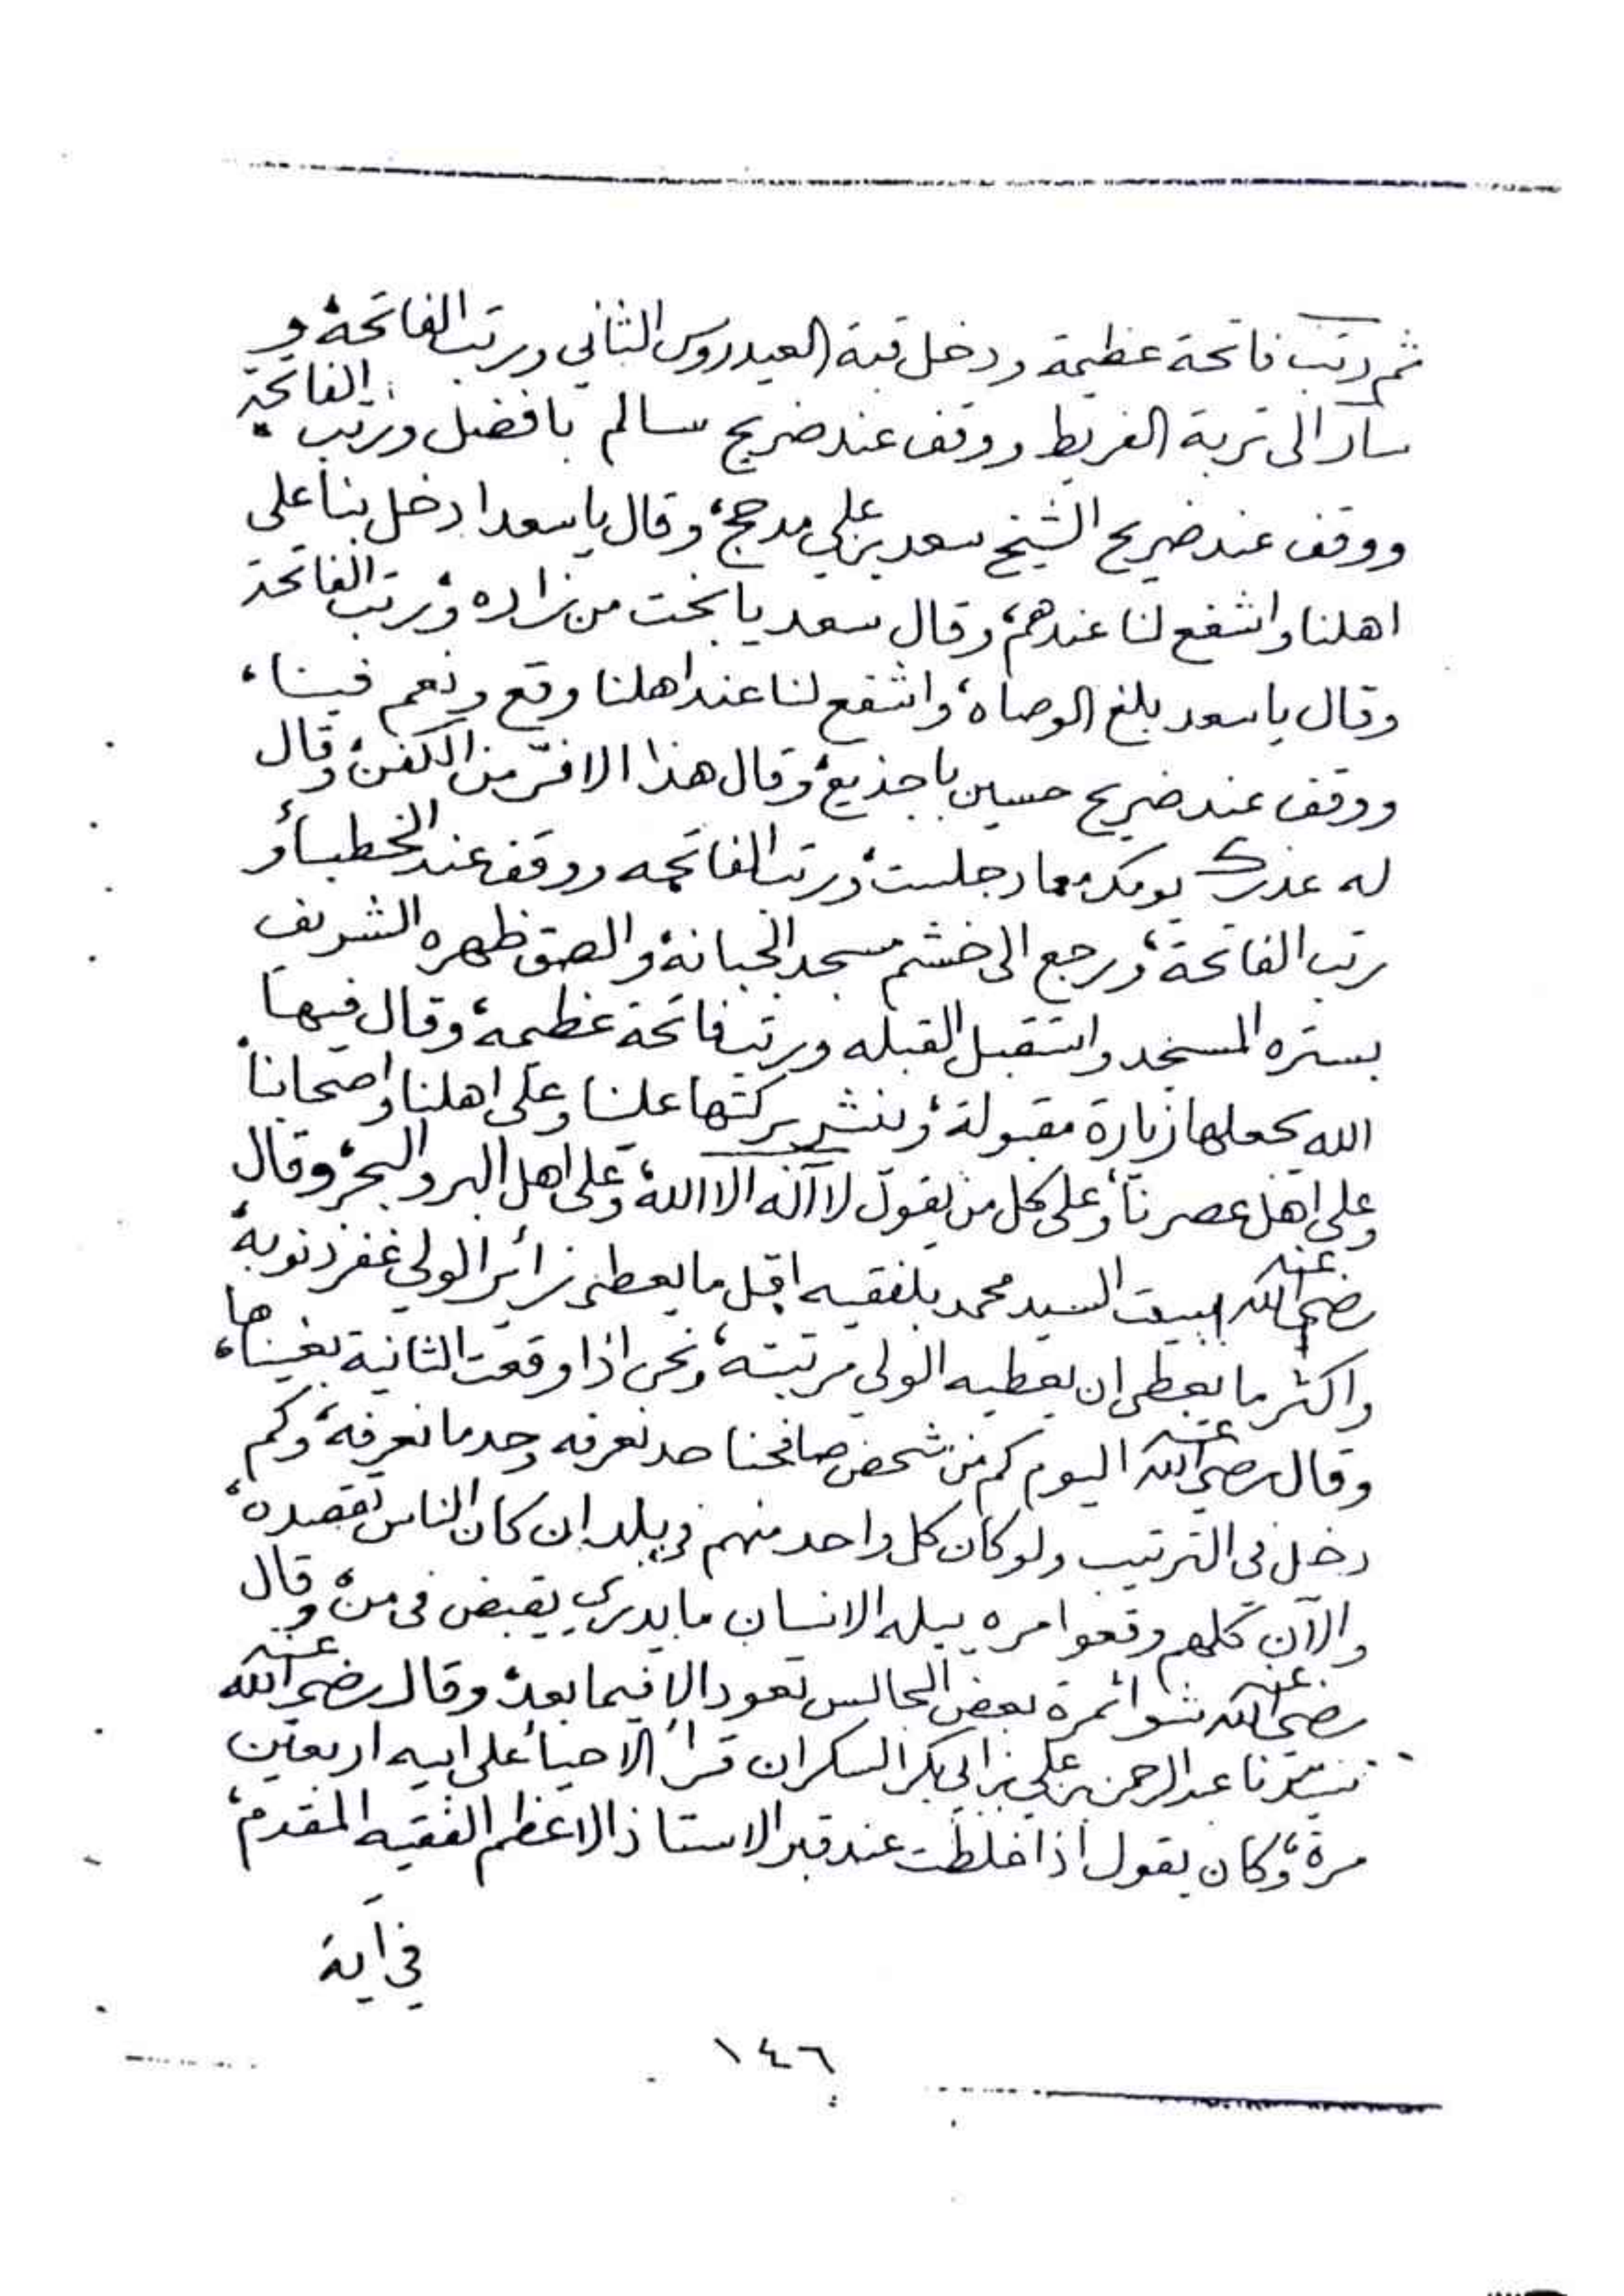 ثم رتب فاتحة عظيمة ودخل قبة العيدروس الثاني ورتب الفاتحة، و
سار الى تربة الفريط ووقف عند ضريح سالم بافضل ورتب الفاتحة
ووقف عند ضريح الشيخ سعد بن علي مدحج، وقال يا سعد ادخل بنا على
اهلنا واشفع لنا عندهم، وقال سعد يا بخت من زاره، ورتب الفاتحة
وقال يا سعد بلغ الوصاه، واشفع لنا عند اهلنا وقع ونعم فينا،
ووقف عند ضريح حسين باجذيع، وقال هذا الا فرّ من الكفن، وقال
له عذرك يومك معاد جلست، ورتب الفاتحه ووقف عند الخطباء و
رتب الفاتحة، ورجع الى خشم مسجد الجبانة، والصق ظهره الشريف
بستره المسجد واستقبل القبله ورتب فاتحة عظيمة، وقال فيها
الله يجعلها زيارة مقبولة، وينشر بركتها علينا وعلى اهلنا واصحابنا
وعلى اهل عصرنا، وعلى كل من يقول لا آله الا الله، وعلى اهل البر والبحر، وقال
رضي الله عنه ببيت السيد محمد بلفقيه اقل ما يعطى زائر الولي غفر ذنوبه،
واكثر ما يعطى ان يعطيه الولي مرتبته، ونحن اذا وقعت الثانية بغيناها،
وقال رضي الله عنه اليوم كم من شخص صافحنا حد نعرفه وحد ما نعرفه، وكم
دخل في الترتيب ولو كان كل واحد منهم في بلد ان كان الناس تقصده،
والآن كلهم وقعوا مره بيله الانسان ما يدري يقبض في من، وقال
رضي الله عنه شوا ثمرة بعض المجالس تعود الا فيما بعد، وقال رضي الله عنه
سيدنا عبد الرحمن بن علي بن ابي بكر السكران قرأ الاحياء على ابيه اربعين
مرة، وكان يقول اذا غلطت عند قبر الاستاذ الاعظم الفقيه المقدم،
في آية
١٤٦